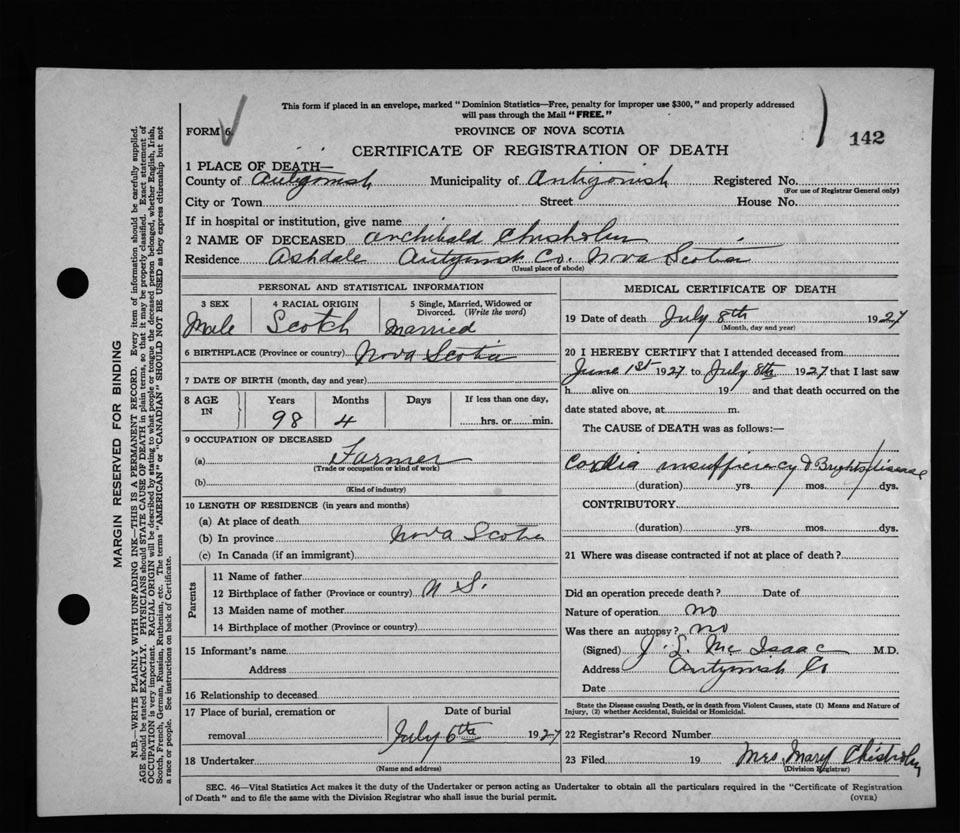 This form if placed in an envelope, marked "Dominion Statistics—Free, penalty for improper use $300," and properly addressed
will pass through the Mail "FREE."
FORM 6
PROVINCE OF NOVA SCOTIA
142
CERTIFICATE OF REGISTRATION OF DEATH
1 PLACE OF DEATH—
County of Antigonish Municipality of Antigonish Registered No.
(For use of Registrar General only)
City or Town Street House No.
If in hospital or institution, give name
2 NAME OF DECEASED Archibald Chisholm
Residence Ashdale Antigonish Co. Nova Scotia
(Usual place of abode)
PERSONAL AND STATISTICAL INFORMATION
3 SEX 4 RACIAL ORIGIN 5 Single, Married, Widowed or
Divorced. (Write the word)
Male Scotch Married
6 BIRTHPLACE (Province or country) Nova Scotia
7 DATE OF BIRTH (month, day and year)
8 AGE IN Years Months Days If less than one day,
98 4 hrs. or min.
9 OCCUPATION OF DECEASED
(a) Farmer
(Trade or occupation or kind of work)
(b)
(Kind of industry)
10 LENGTH OF RESIDENCE (in years and months)
(a) At place of death
(b) In province Nova Scotia
(c) In Canada (if an immigrant)
Parents
11 Name of father
12 Birthplace of father (Province or country) N S.
13 Maiden name of mother
14 Birthplace of mother (Province or country)
15 Informant's name
Address
16 Relationship to deceased
17 Place of burial, cremation or Date of burial
removal July 6th 1927
18 Undertaker
(Name and address)
MEDICAL CERTIFICATE OF DEATH
19 Date of death July 8th 1927
(Month, day and year)
20 I HEREBY CERTIFY that I attended deceased from
June 1st 1927 to July 8th 1927 that I last saw
h alive on 19 and that death occurred on the
date stated above, at m.
The CAUSE of DEATH was as follows:—
Cardia insufficiency & Brights disease
(duration) yrs. mos. dys.
CONTRIBUTORY
(duration) yrs. mos. dys.
21 Where was disease contracted if not at place of death?
Did an operation precede death? Date of
Nature of operation no
Was there an autopsy? no
(Signed) J. L. Mc Isaac M.D.
Address Antigonish Co
Date
State the Disease causing Death, or in death from Violent Causes, state (1) Means and Nature of
Injury, (2) whether Accidental, Suicidal or Homicidal.
22 Registrar's Record Number
23 Filed 19 Mrs Mary Chisholm
(Division Registrar)
SEC. 46—Vital Statistics Act makes it the duty of the Undertaker or person acting as Undertaker to obtain all the particulars required in the "Certificate of Registration
of Death" and to file the same with the Division Registrar who shall issue the burial permit. (OVER)
MARGIN RESERVED FOR BINDING
N.B.—WRITE PLAINLY WITH UNFADING INK—THIS IS A PERMANENT RECORD. Every item of information should be carefully supplied.
AGE should be stated EXACTLY. PHYSICIANS should STATE CAUSE OF DEATH in plain terms, so that it may be properly classified. Exact statement of
OCCUPATION is very important. RACIAL ORIGIN will be described by stating to what people or tongue the deceased person belonged, whether English, Irish,
Scotch, French, German, Russian, Ruthenian, etc. The terms "AMERICAN" or "CANADIAN" SHOULD NOT BE USED as they express citizenship but not
a race or people. See instructions on back of Certificate.